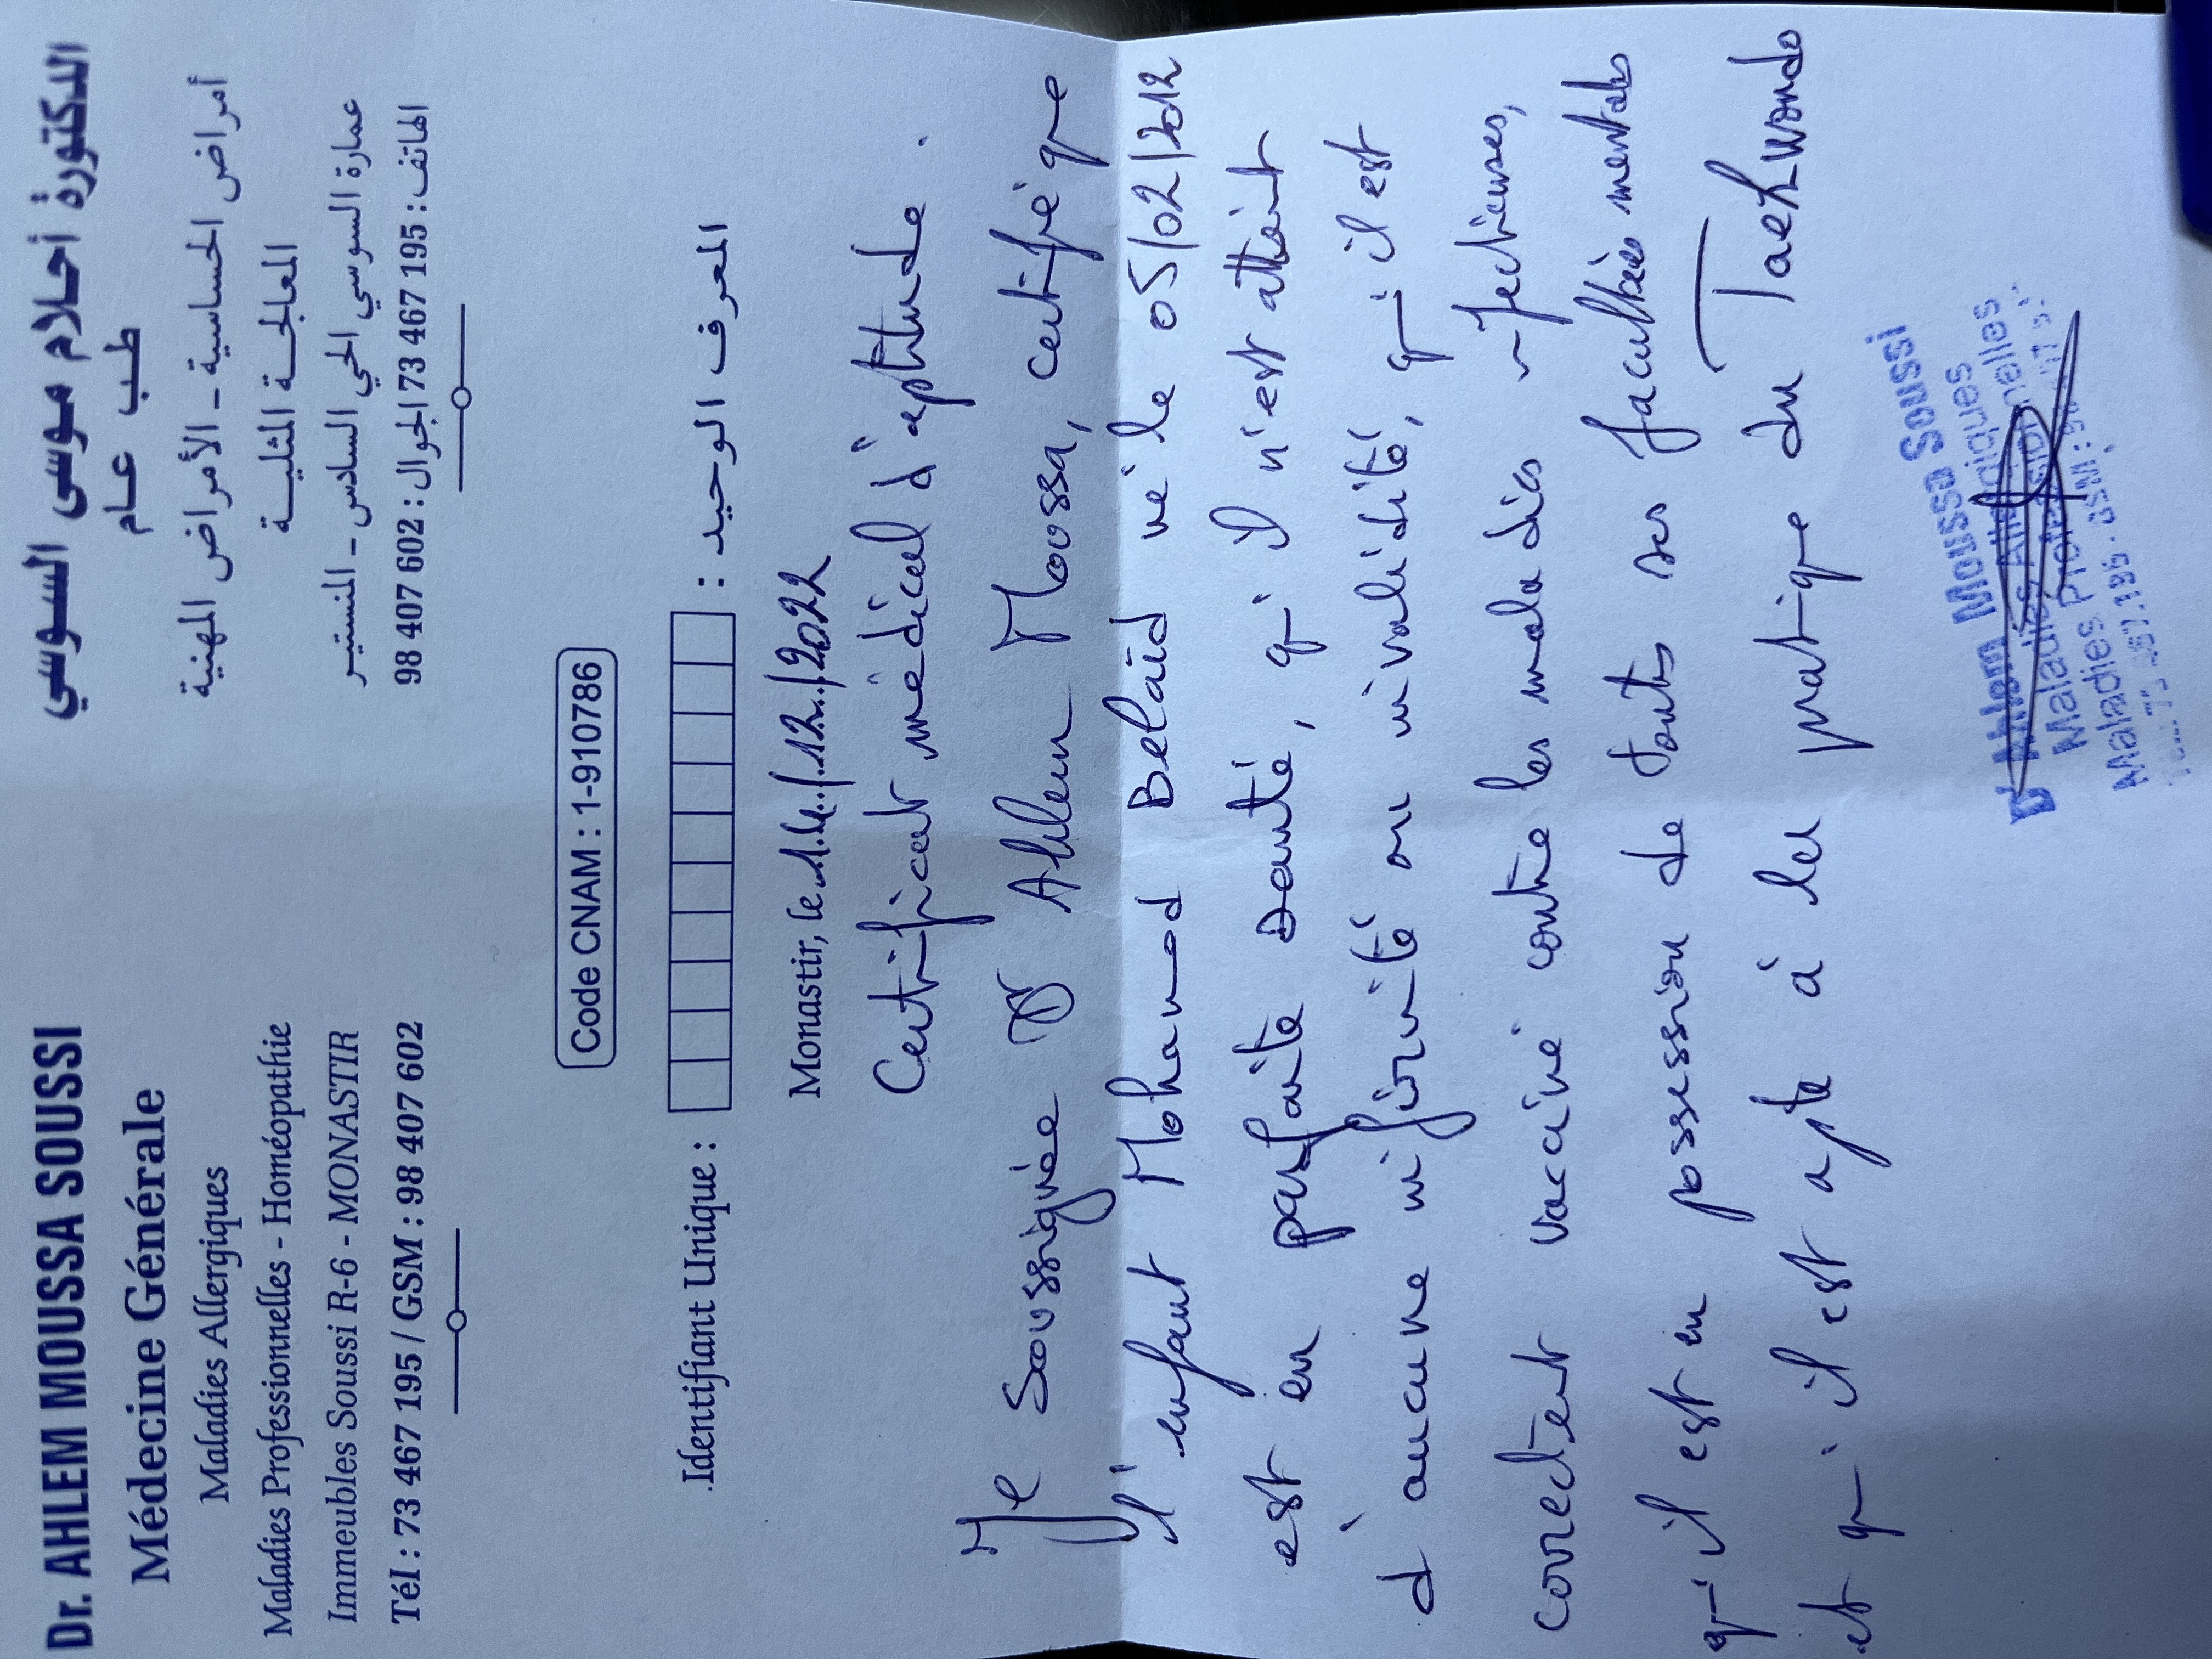 Dr. AHLEM MOUSSA SOUSSI
Médecine Générale
Maladies Allergiques
Maladies Professionnelles - Homéopathie
Immeubles Soussi R-6 - MONASTIR
Tél : 73 467 195 / GSM : 98 407 602
الدكتورة أحلام موسى السوسي
طب عام
أمراض الحساسية - الأمراض المهنية
المعالجة المثلية
عمارة السوسي الحي السادس - المنستير
الهاتف : 195 467 73 الجوال : 602 407 98
Code CNAM : 1-910786
Identifiant Unique : المعرف الوحيد :
Monastir, le 14/12/2022
Certificat médical d'aptitude.
Je Soussignée Dr Ahlem Moussa, certifie que
l'enfant Mohamed Belaid né le 05/02/2012
est en parfaite santé, qu'il n'est atteint
d'aucune infirmité ou invalidité, qu'il est
correctent vacciné contre les maladies infectieuses,
qu'il est en possession de toutes ses facultées mentales
et qu'il est apte à la pratique du Taekwondo
Dr Ahlem Moussa Soussi
Maladies Allergiques
Maladies Professionnelles